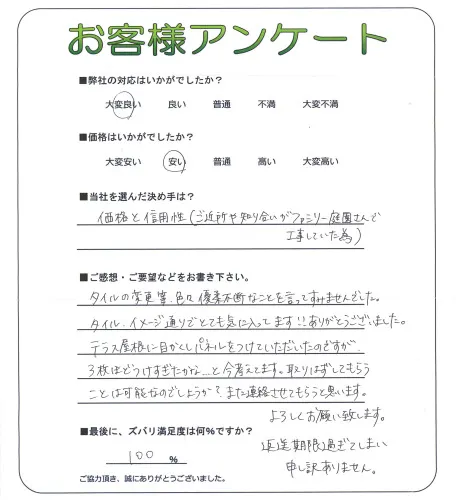 お客様アンケート
■弊社の対応はいかがでしたか?
大変良い 良い 普通 不満 大変不満
■価格はいかがでしたか?
大変安い 安い 普通 高い 大変高い
■当社を選んだ決め手は?
価格と信用性(ご近所や知り合いがファミリー庭園さんで
工事していた為)
■ご感想・ご要望などをお書き下さい。
タイルの変更等、色々優柔不断なことを言ってすみませんでした。
タイル、イメージ通りでとても気に入ってます!!ありがとうございました。
テラス屋根に目かくしパネルをつけていただいたのですが、
3枚ほどつけすぎたかな…と今考えてます。取りはずしてもらう
ことは可能なのでしょうか?また連絡させてもらうと思います。
よろしくお願い致します。
■最後に、ズバリ満足度は何%ですか?
100 %
返送期限過ぎてしまい
申し訳ありません。
ご協力頂き、誠にありがとうございました。